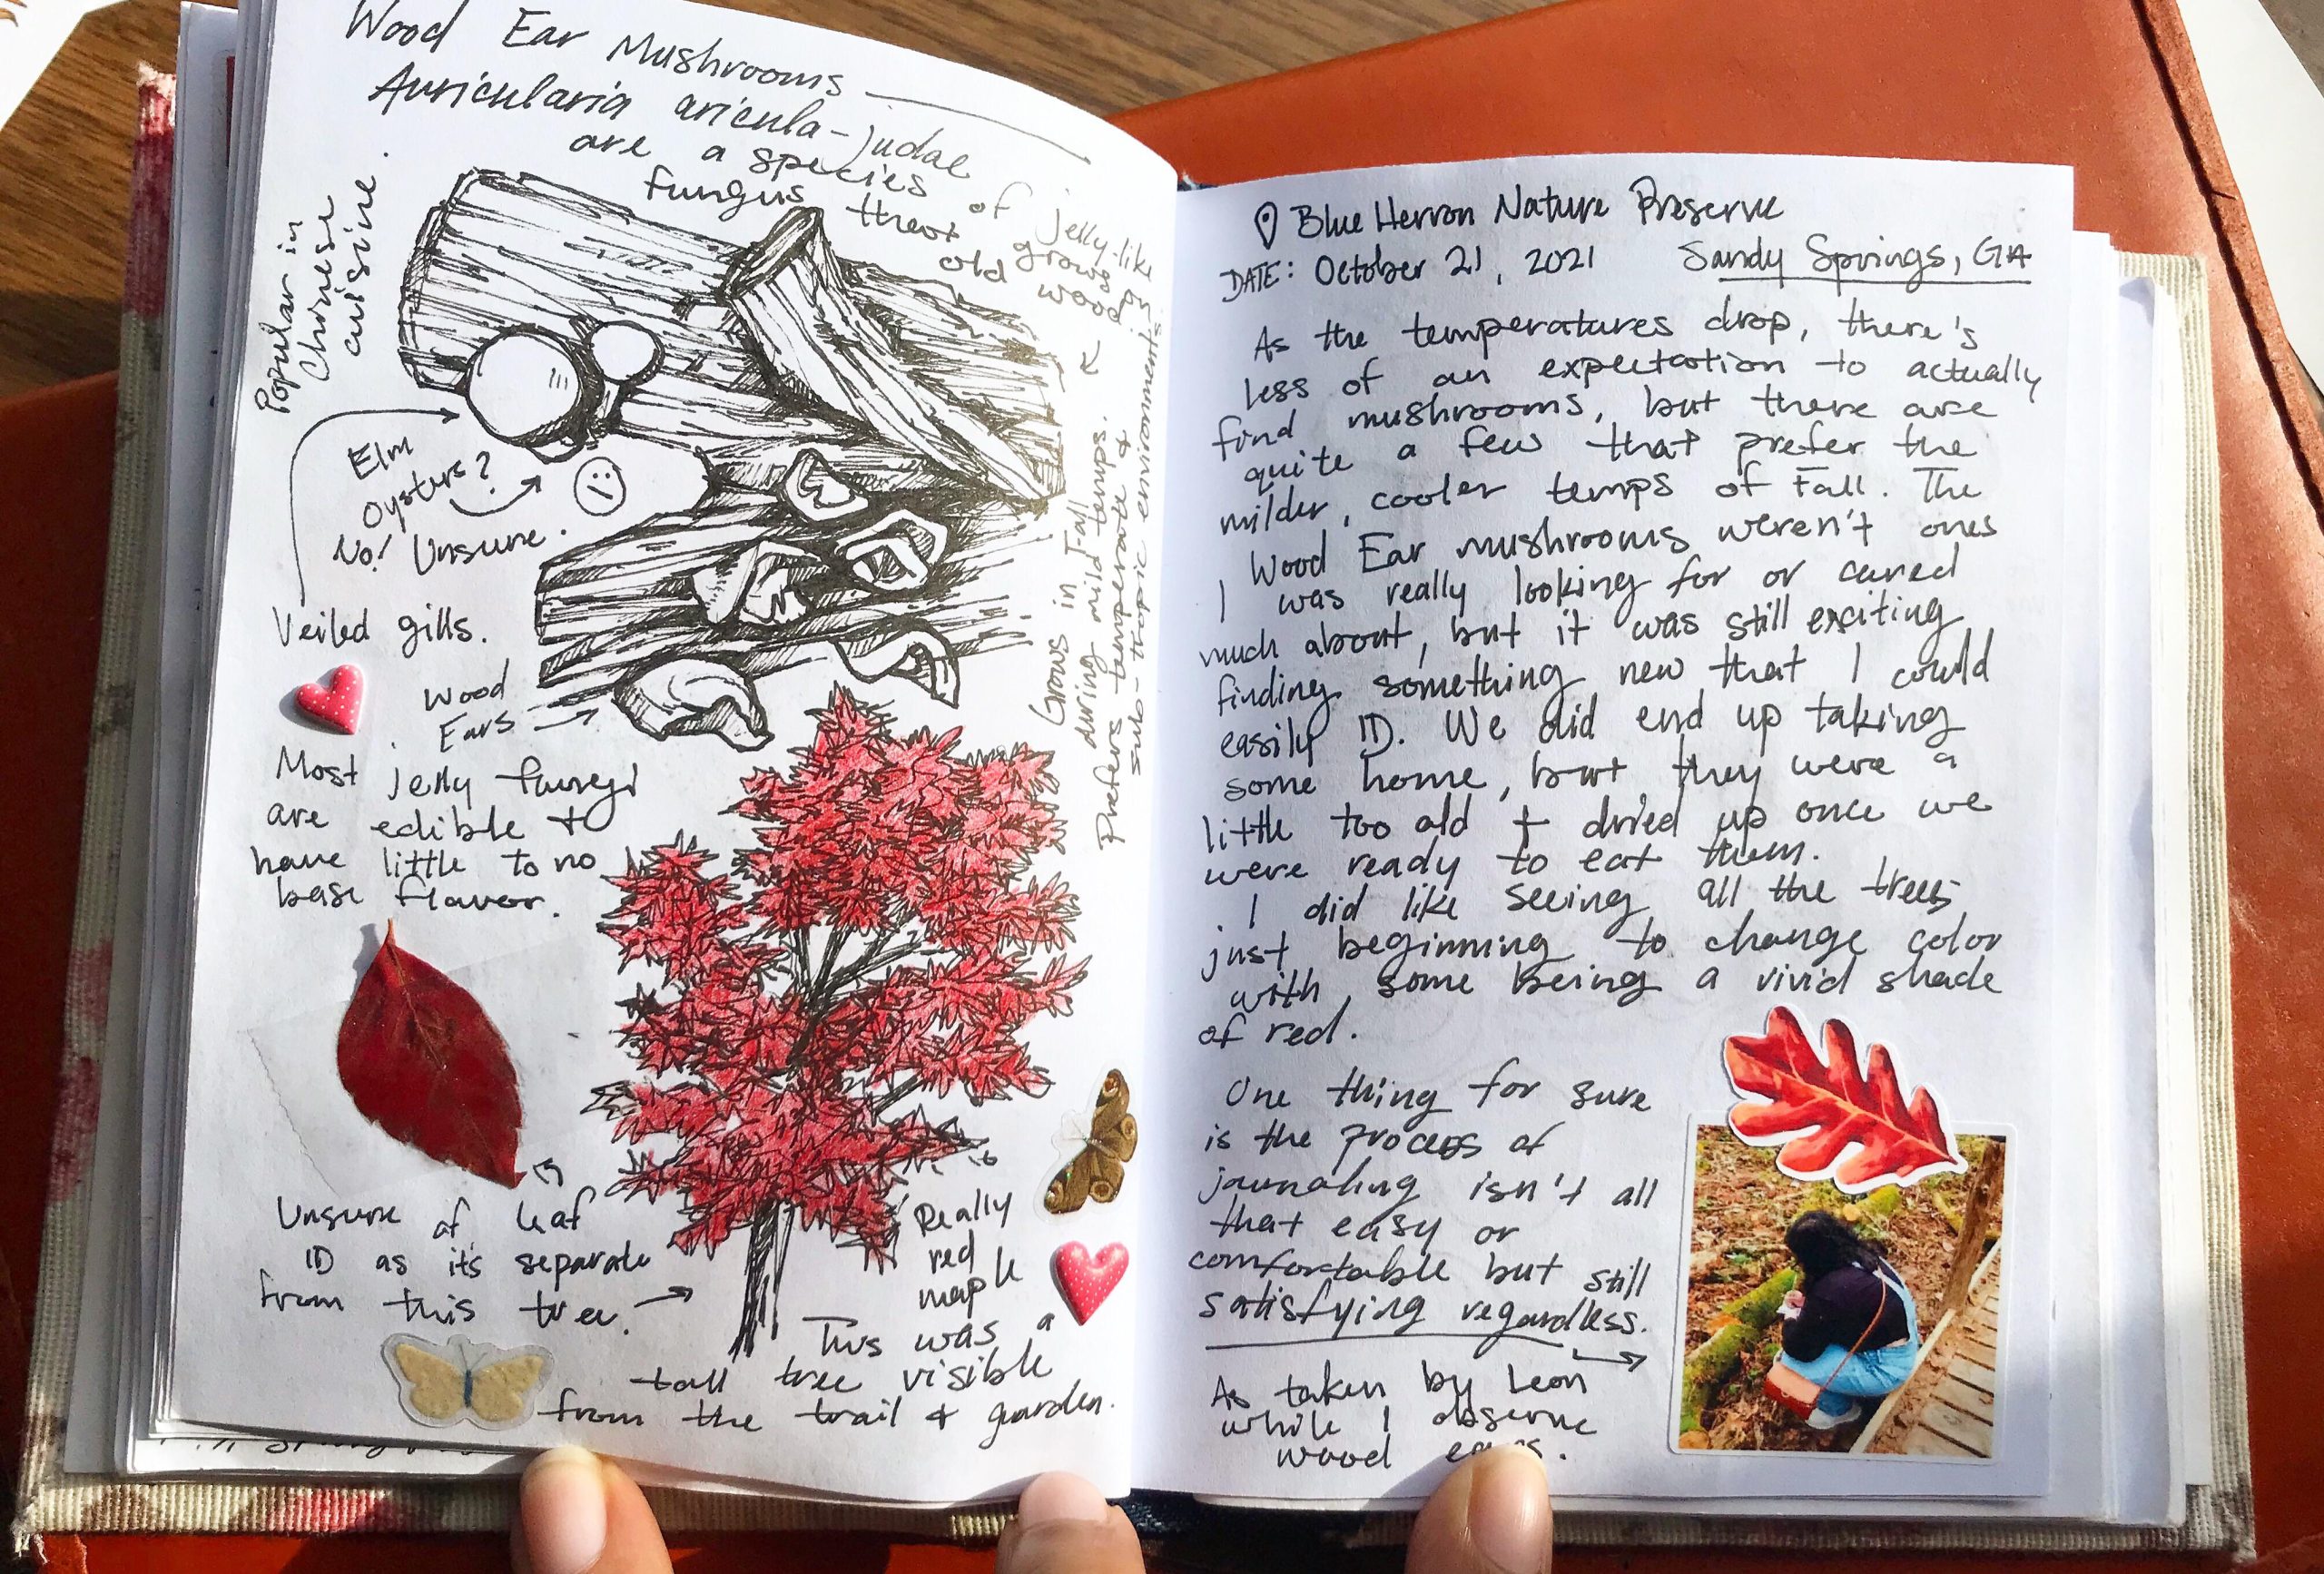 Wood Ear Mushrooms
Auricularia aricula-judae
are a species of jelly-like
fungus that grows on
old wood.
Popular in
Chinese
cuisine.
Elm
Oysters?
No! Unsure.
Veiled gills.
Wood
Ears
Grows in Fall
during mild temps.
Prefers temperate &
sub-tropic environments.
Most jelly fungi
are edible &
have little to no
base flavor.
Unsure of leaf
ID as it's separate
from this tree.
Really
red
maple
This was a
tall tree visible
from the trail & garden.
Blue Herron Nature Preserve
DATE: October 21, 2021 Sandy Springs, GA
As the temperatures drop, there's
less of an expectation to actually
find mushrooms, but there are
quite a few that prefer the
milder, cooler temps of Fall. The
Wood Ear mushrooms weren't ones
I was really looking for or cared
much about, but it was still exciting
finding something new that I could
easily ID. We did end up taking
some home, but they were a
little too old & dried up once we
were ready to eat them.
I did like seeing all the trees
just beginning to change color
with some being a vivid shade
of red.
One thing for sure
is the process of
journaling isn't all
that easy or
comfortable but still
satisfying regardless.
As taken by Leon
while I observe
wood ears.